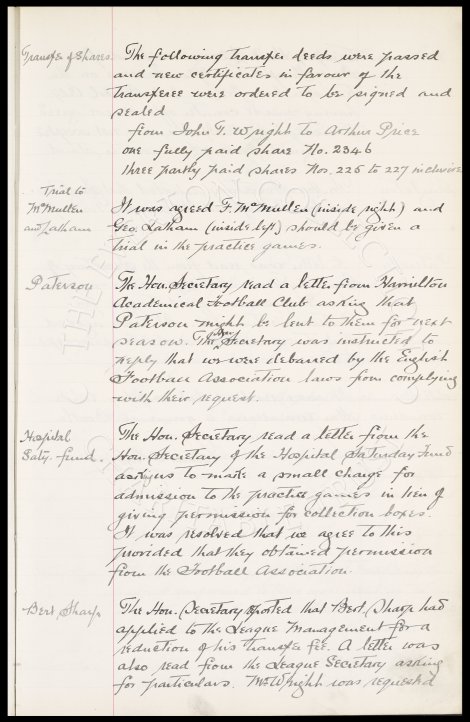 Transfer of Shares.
The following transfer deeds were passed
and new certificates in favour of the
transferee were ordered to be signed and
sealed
from John T. Wright to Arthur Price
one fully paid share No. 2346
three partly paid shares Nos. 225 to 227 inclusive
Trial to
McMullen
and Latham
It was agreed F. McMullen (inside right) and
Geo. Latham (inside left) should be given a
trial in the practice games.
Paterson
The Hon. Secretary read a letter from Hamilton
Academical Football Club asking that
Paterson might be lent to them for next
season. The Hon. Secretary was instructed to
reply that we were debarred by the English
Football Association laws from complying
with their request.
Hospital
Saty. Fund.
The Hon. Secretary read a letter from the
Hon. Secretary of the Hospital Saturday Fund
asking us to make a small charge for
admission to the practice games in lieu of
giving permission for collection boxes.
It was resolved that we agree to this
provided that they obtained permission
from the Football Association.
Bert Sharp
The Hon. Secretary reported that Bert Sharp had
applied to the League Management for a
reduction of his transfer fee. A letter was
also read from the League Secretary asking
for particulars. Mr Wright was requested